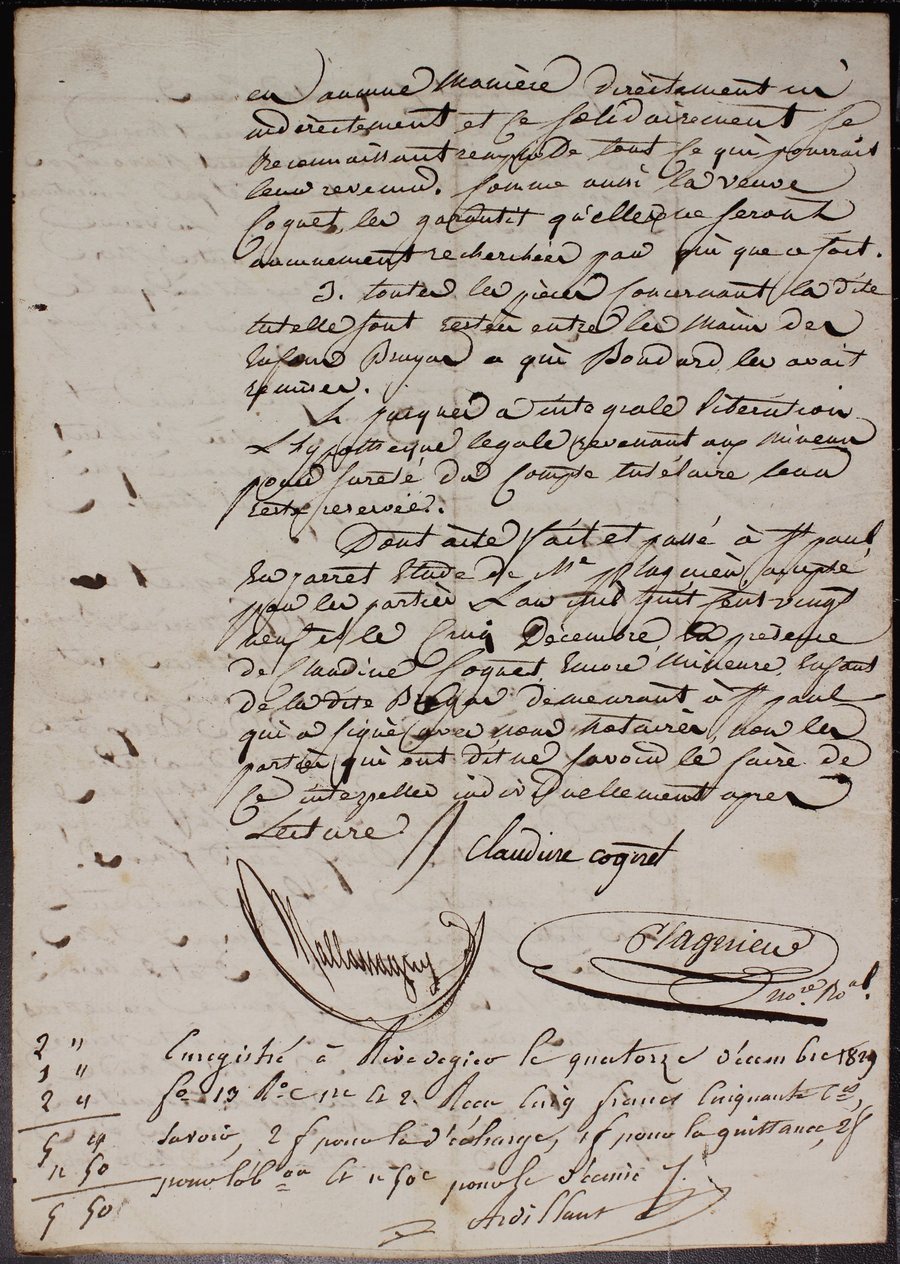 en aucune manière directement ni
indirectement et ce solidairement se
reconnaissant rempli de tout ce qui pourrait
leur revenir. Comme aussi la veuve
Coquet les garantit qu'elles ne seront
aucunement recherchées par qui que ce soit.
3. toutes les pièces concernant la dite
tutelle sont restées entre les mains des
enfans Bruyas a qui Boudard les avait
remises.
4. jusques a intégrale libération
L'hypothèque legale revenant aux mineurs
pour sureté du Compte tutélaire leur
reste reservée.
Dont acte fait et passé à St paul
En jarret Etude de Me Plagnieu, accepté
par les parties L'an mil huit cent vingt
neuf et le cinq Décembre, en présence
de Claudine Coquet, encore mineure, enfant
de la dite Bruyas demeurant à St paul
qui a signé avec nous notaires, non les
parties qui ont dit ne savoir le faire de
ce interpellés individuellement apres
Lecture
Claudine cognet
Plagnieu
Nore Roal
2 "
1 "
2 "
5 "
" 50
5 50
Enregistré à Rivedegier le quatorze décembre 1829
fo 13 Ro c 1re et 2. Reçu cinq francs cinquante Ces,
savoir, 2 f pour la décharge, 1 f pour la quittance, 2 f
pour l'obon et " 50c pour le décime
Ardillant